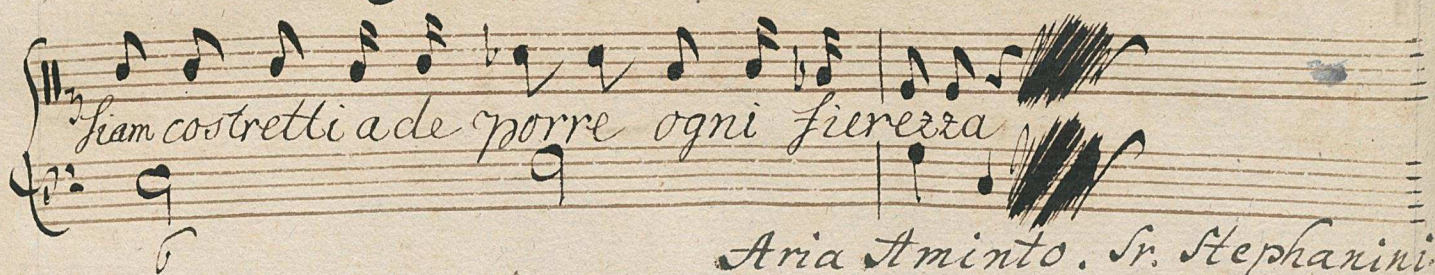 Siam costretti a de porre ogni fierezza
6
Aria Aminto. Sr. Stephanini